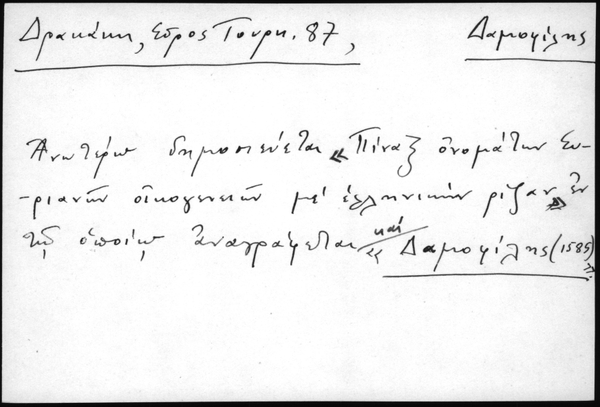 Δρακάκη, Σῦρος Τουρκ. 87, Δαμοφίλης
Ἀνωτέρω δημοσιεύεται «Πίναξ ὀνομάτων Συ-
-ριανῶν οἰκογενειῶν μέ ἑλληνικήν ρίζαν» ἐν
τῷ ὁποίῳ ἀναγράφεται καί « Δαμοφίλης (1585)».